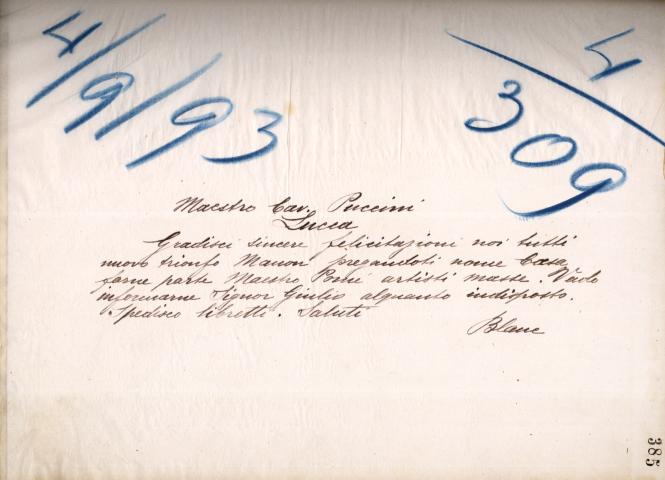 4/9/93
4/309
Maestro Cav. Puccini
Lucca
Gradisci sincere felicitazioni noi tutti
nuovo trionfo Manon pregandoti nome Casa
farne parte Maestro Pomè artisti masse. Vado
informarne Signor Giulio alquanto indisposto.
Spedisco libretti. Saluti
Blanc
385